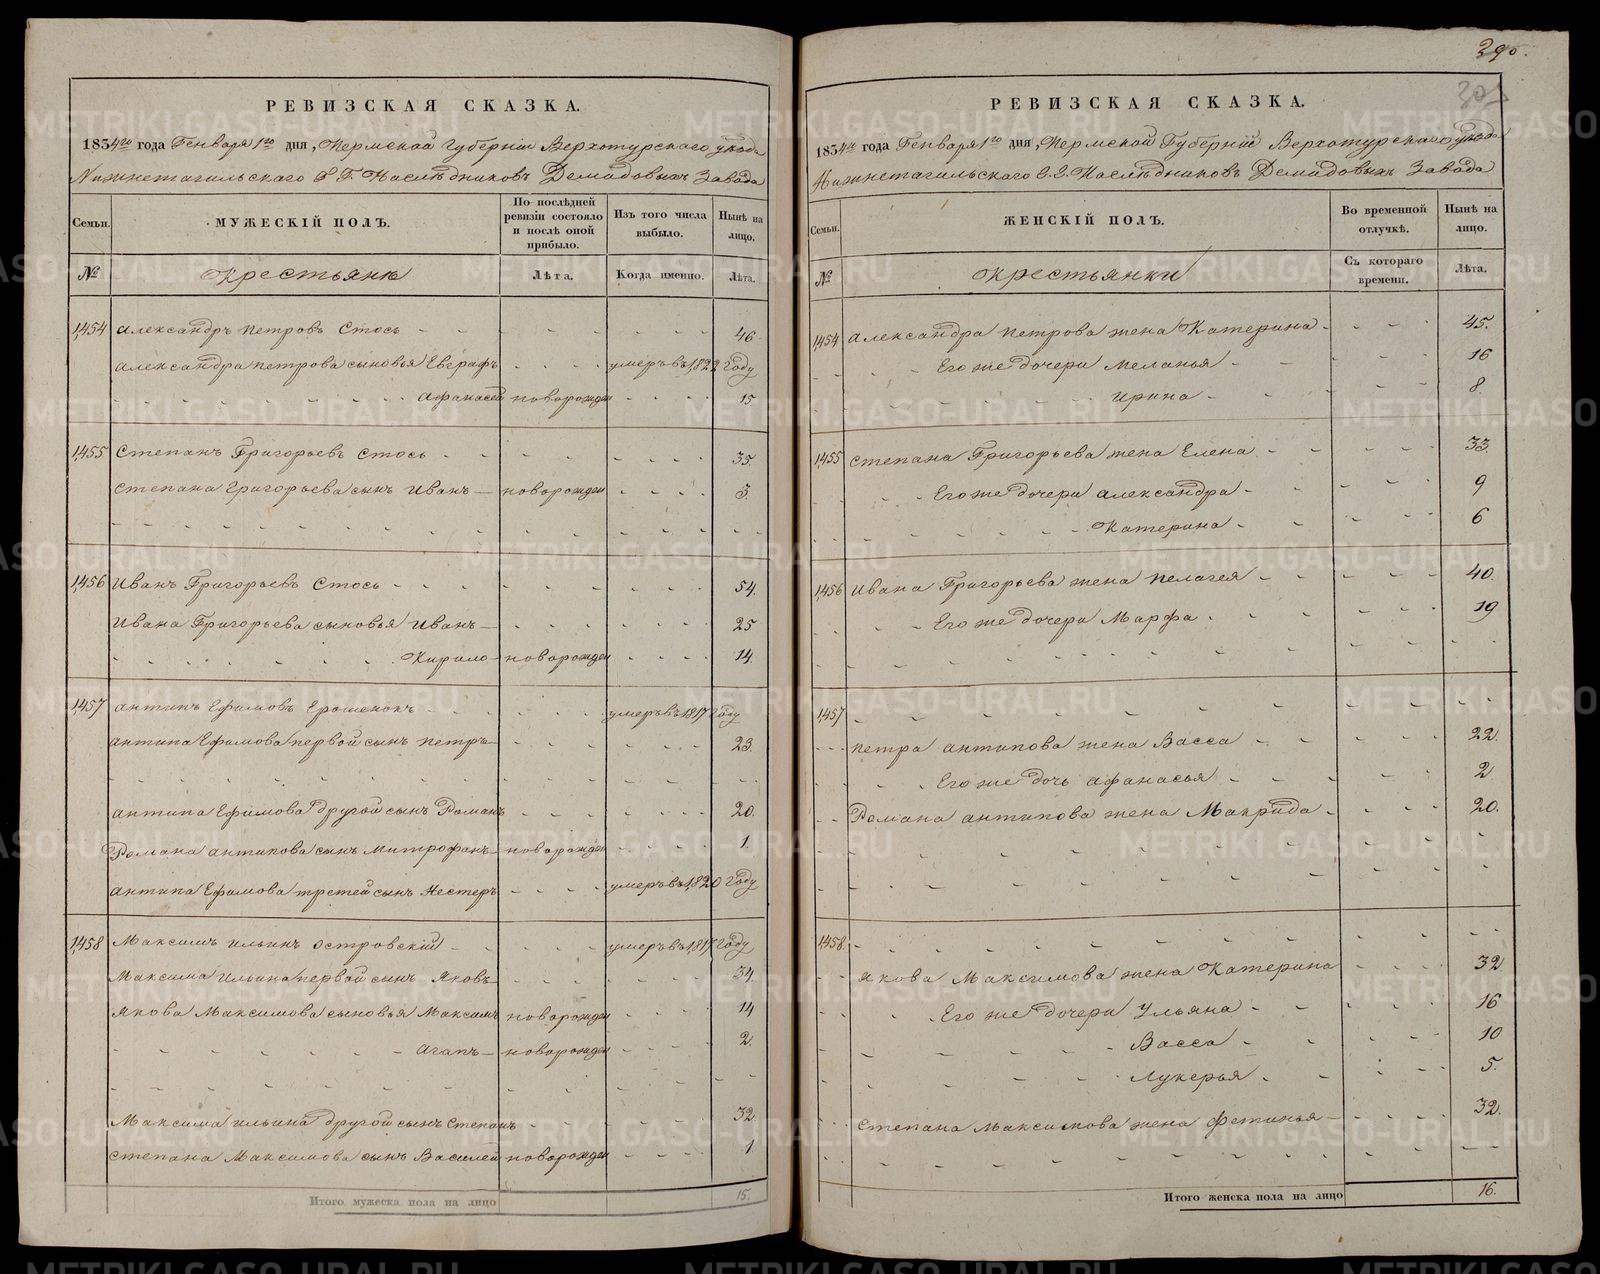 РЕВИЗСКАЯ СКАЗКА.
1834го года Генваря 1го дня, Пермской Губернiи Верхотурского уезда
Нижнетагильского Г. Г. Наслѣдниковъ Демидовыхъ Завода
Семьи. МУЖЕСКIЙ ПОЛЪ. По послѣдней ревизiи состояло и послѣ оной прибыло. Изъ того числа выбыло. Нынѣ на лицо.
№ Крестьяне Лѣта. Когда именно. Лѣта.
1,454 Александръ Петровъ Стось 46
Александра Петрова сыновья Евграфъ умеръ въ 1,822 Году
Афанасей новорожден 15
1,455 Степанъ Григорьевъ Стось 35.
Степана Григорьева сынъ Иванъ новорожден 3
1,456 Иванъ Григорьевъ Стось 54.
Ивана Григорьева сыновья Иванъ 25
Кирило новорожден 14.
1,457 Антипъ Ефимовъ Ерошенокъ умеръ въ 1817 Году
Антипа Ефимова первой сынъ Петръ 23.
Антипа Ефимова другой сынъ Романъ 20.
Романа Антипова сынъ Митрофанъ новорожден 1
Антипа Ефимова третей сынъ Нестеръ умеръ въ 1,820 Году
1,458 Максимъ Ильинъ Островскiй умеръ въ 1,817 Году
Максима Ильина первой сынъ Яковъ 34.
Якова Максимова сыновья Максимъ новорожден 14
Агапъ новорожден 2.
Максима Ильина другой сынъ Степанъ 32.
Степана Максимова сынъ Василей новорожден 1
Итого мужеска пола на лицо 15.
290.
РЕВИЗСКАЯ СКАЗКА.
1834го года Генваря 1го дня, Пермской Губернiи Верхотурского уезда
Нижнетагильского Г. Г. Наслѣдниковъ Демидовыхъ Завода
Семьи. ЖЕНСКIЙ ПОЛЪ. Во временной отлучкѣ. Нынѣ на лицо.
№ Крестьянки Съ котораго времени. Лѣта.
1,454 Александра Петрова жена Катерина 45.
Его же дочери Меланья 16
Ирина 8
1,455 Степана Григорьева жена Елена 33
Его же дочери Александра 9
Катерина 6
1,456 Ивана Григорьева жена Пелагея 40.
Его же дочери Марфа 19
1,457
Петра Антипова жена Васса 22.
Его же дочь Афанасья 2
Романа Антипова жена Макрида 20.
1,458
Якова Максимова жена Катерина 32
Его же дочери Ульяна 16
Васса 10
Лукерья 5.
Степана Максимова жена Фетинья 32.
Итого женска пола на лицо 16.
METRIKI.GASO-URAL.RU